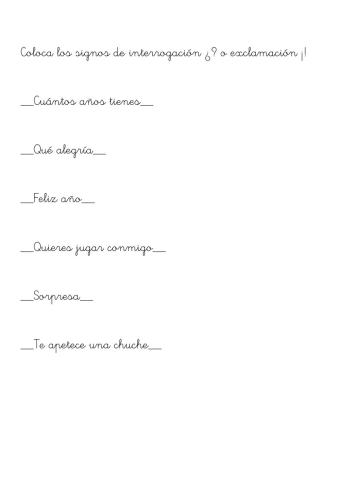 Coloca los signos de interrogación ¿? o exclamación ¡!
__Cuántos años tienes__
__Qué alegría__
__Feliz año__
__Quieres jugar conmigo__
__Sorpresa__
__Te apetece una chuche__